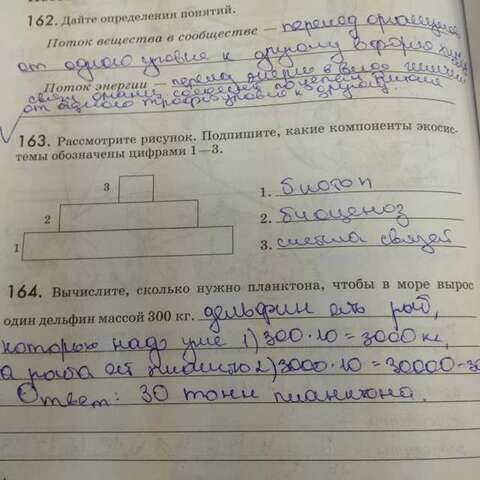 162. Дайте определения понятий.
Поток вещества в сообществе — переход
от одного уровня к другому в форме
Поток энергии — переход энергии в виде
связей
от одного уровня к другому.
163. Рассмотрите рисунок. Подпишите, какие компоненты экосис-
темы обозначены цифрами 1—3.
3
1. биотоп
2
2. биоценоз
1
3. система связей
164. Вычислите, сколько нужно планктона, чтобы в море вырос
один дельфин массой 300 кг. дельфин есть рыб,
которою надо уже 1) 300·10=3000 кг,
а рыба ест 2) 3000·10=30000-30
Ответ: 30 тонн планктона.